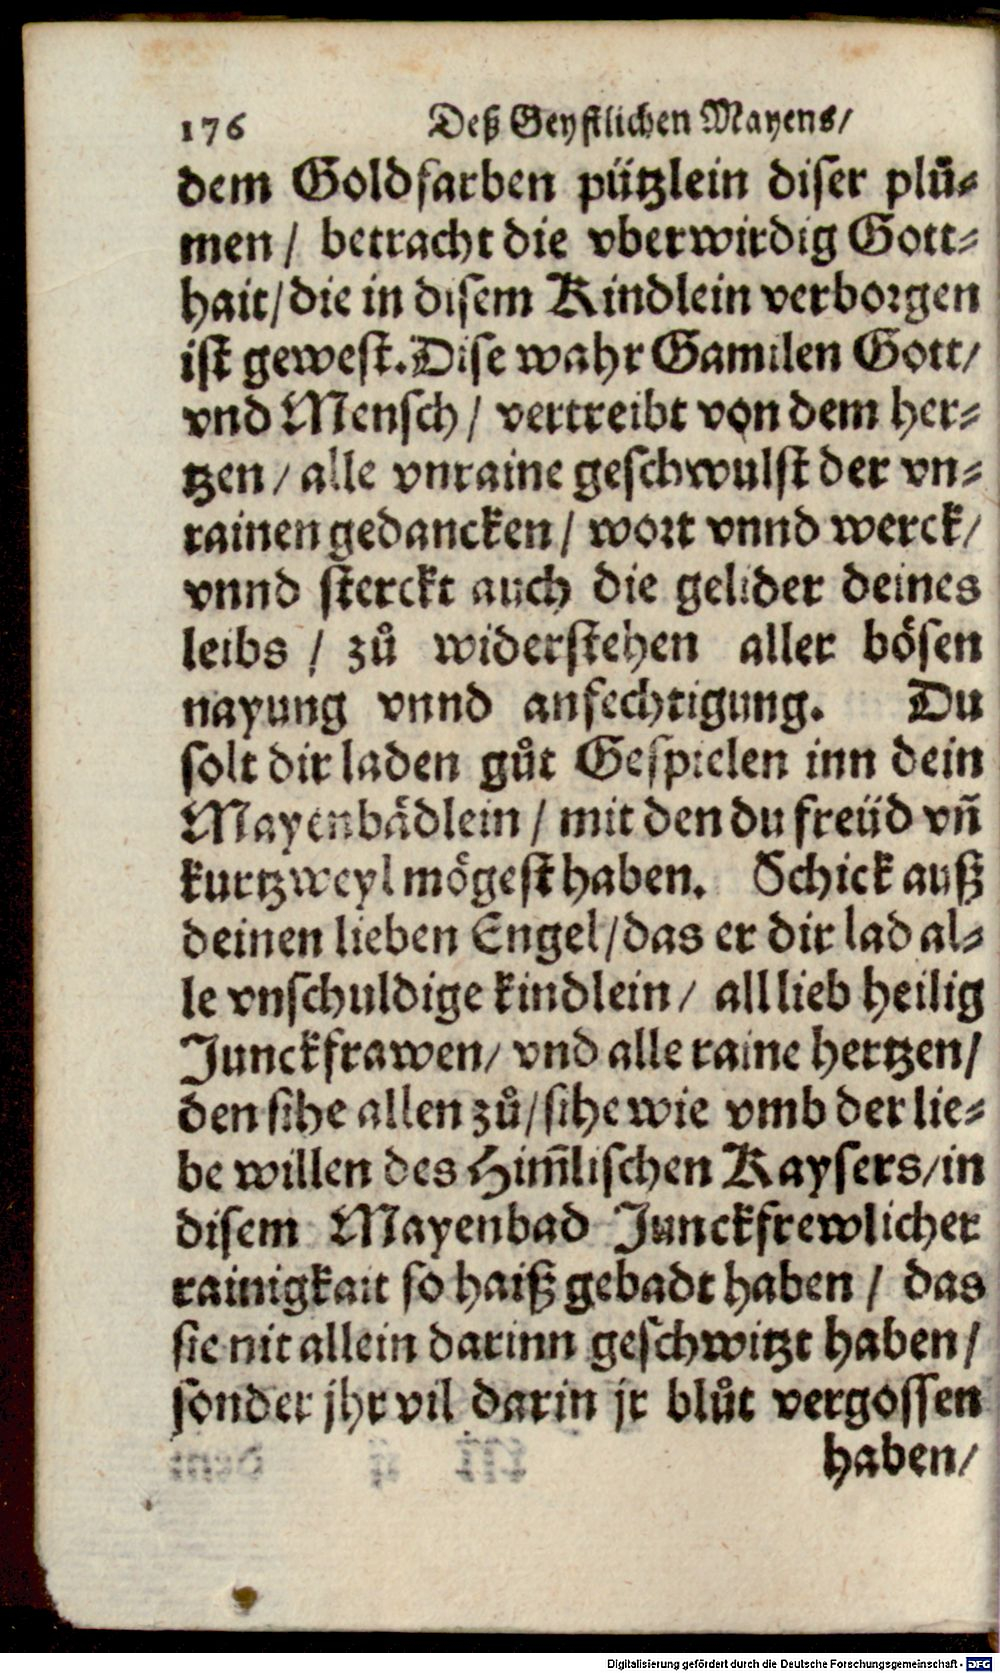 176 Deß Geystlichen Mayens/
dem Goldfarben pützlein diser plů-
men / betracht die vberwirdig Gott-
hait/die in disem Kindlein verborgen
ist gewest. Dise wahr Gamilen Gott/
vnd Mensch / vertreibt von dem her-
tzen / alle vnraine geschwulst der vn-
rainen gedancken / wort vnnd werck/
vnnd sterckt auch die gelider deines
leibs / zů widerstehen aller bösen
nayung vnnd anfechtigung. Du
solt dir laden gůt Gespielen inn dein
Mayenbädlein / mit den du freüd vñ
kurtzweyl mögest haben. Schick auß
deinen lieben Engel/das er dir lad al-
le vnschuldige kindlein / all lieb heilig
Junckfrawen/ vnd alle raine hertzen/
den sihe allen zů/sihe wie vmb der lie-
be willen des Him̃lischen Kaysers/in
disem Mayenbad Junckfrewlicher
rainigkait so haiß gebadt haben / das
sie nit allein darinn geschwitzt haben/
sonder jhr vil darin jr blůt vergossen
haben/
Digitalisierung gefördert durch die Deutsche Forschungsgemeinschaft - DFG